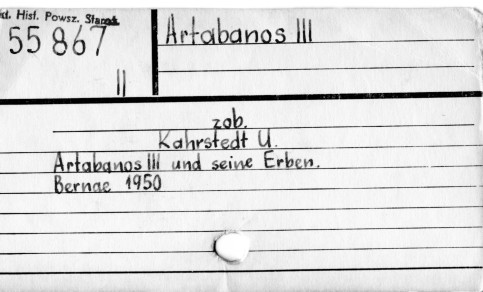 Hist. Powsz. Staroż.
55 867
II
Artabanos III
zob.
Kahrstedt U.
Artabanos III und seine Erben.
Bernae 1950